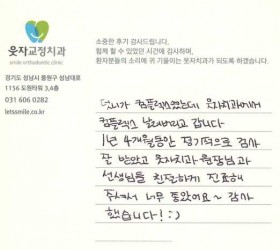 웃자교정치과
smile orthodontic clinic
경기도 성남시 중원구 성남대로
1156 도원타워 3,4층
031 606 0282
letssmile.co.kr
소중한 후기 감사드립니다.
함께 할 수 있었던 시간에 감사하며,
환자분들의 소리에 귀 기울이는 웃자치과가 되도록 하겠습니다.
덧니가 컴플렉스였는데 웃자치과에서
컴플렉스 날려버리고 갑니다
1년 4개월동안 정기적으로 검사
잘 받았고 웃자치과 원장님과
선생님들 친절하게 진료해
주셔서 너무 좋았어요~ 감사
했습니다! :)